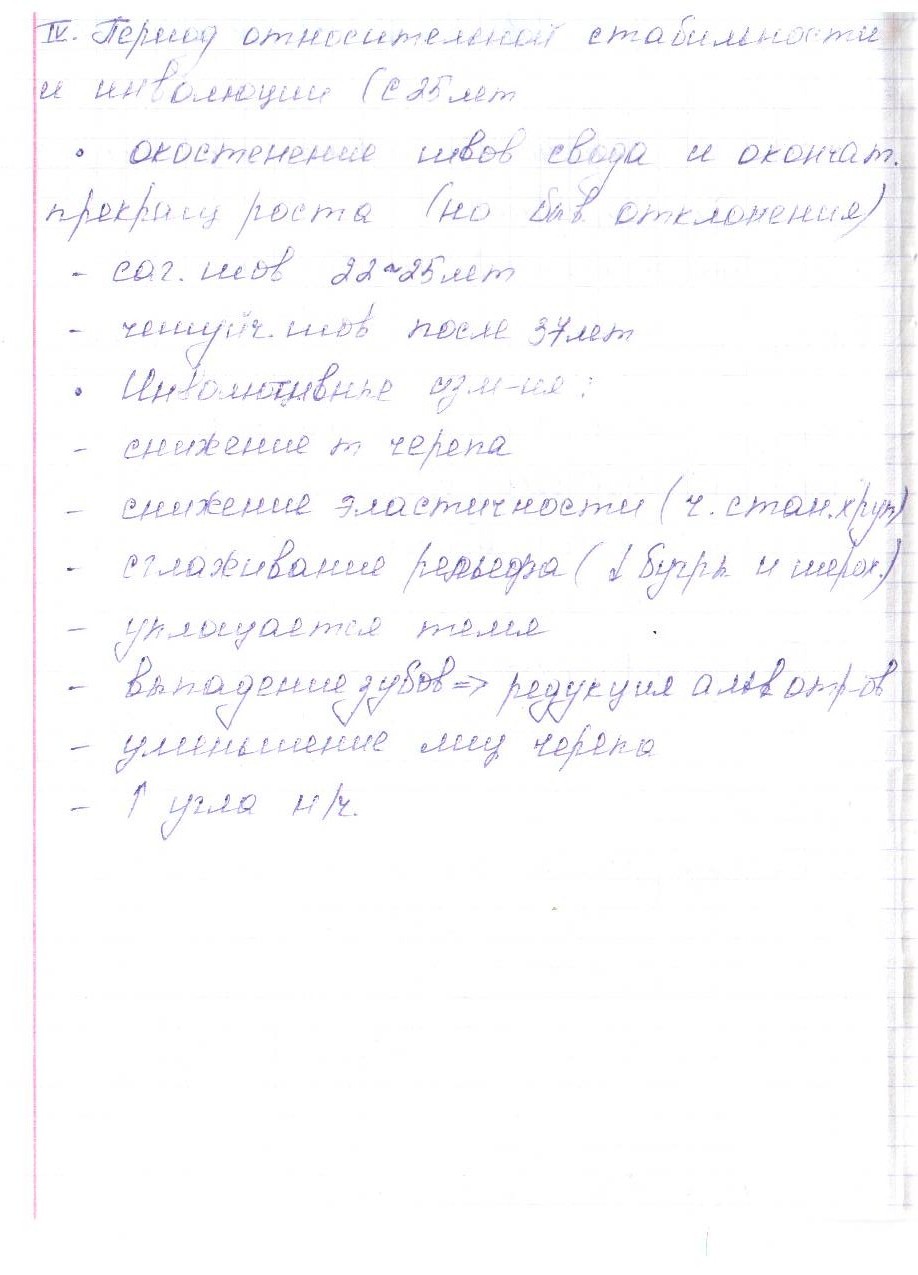 IV. Период относительной стабильности
и инволюции (с 25 лет
• окостенение швов свода и окончат.
прекращ роста (но быв. отклонения)
- саг. шов 22-25 лет
- чешуйч. шов после 37 лет
• Инволютивные изм-ия:
- снижение m черепа
- снижение эластичности (ч. стан. хруп)
- сглаживание рельефа (↓ бугры и шерох.)
- уплощается темя
- выпадение зубов => редукция альв отр-ов
- уменьшение лиц черепа
- ↑ угла н/ч.